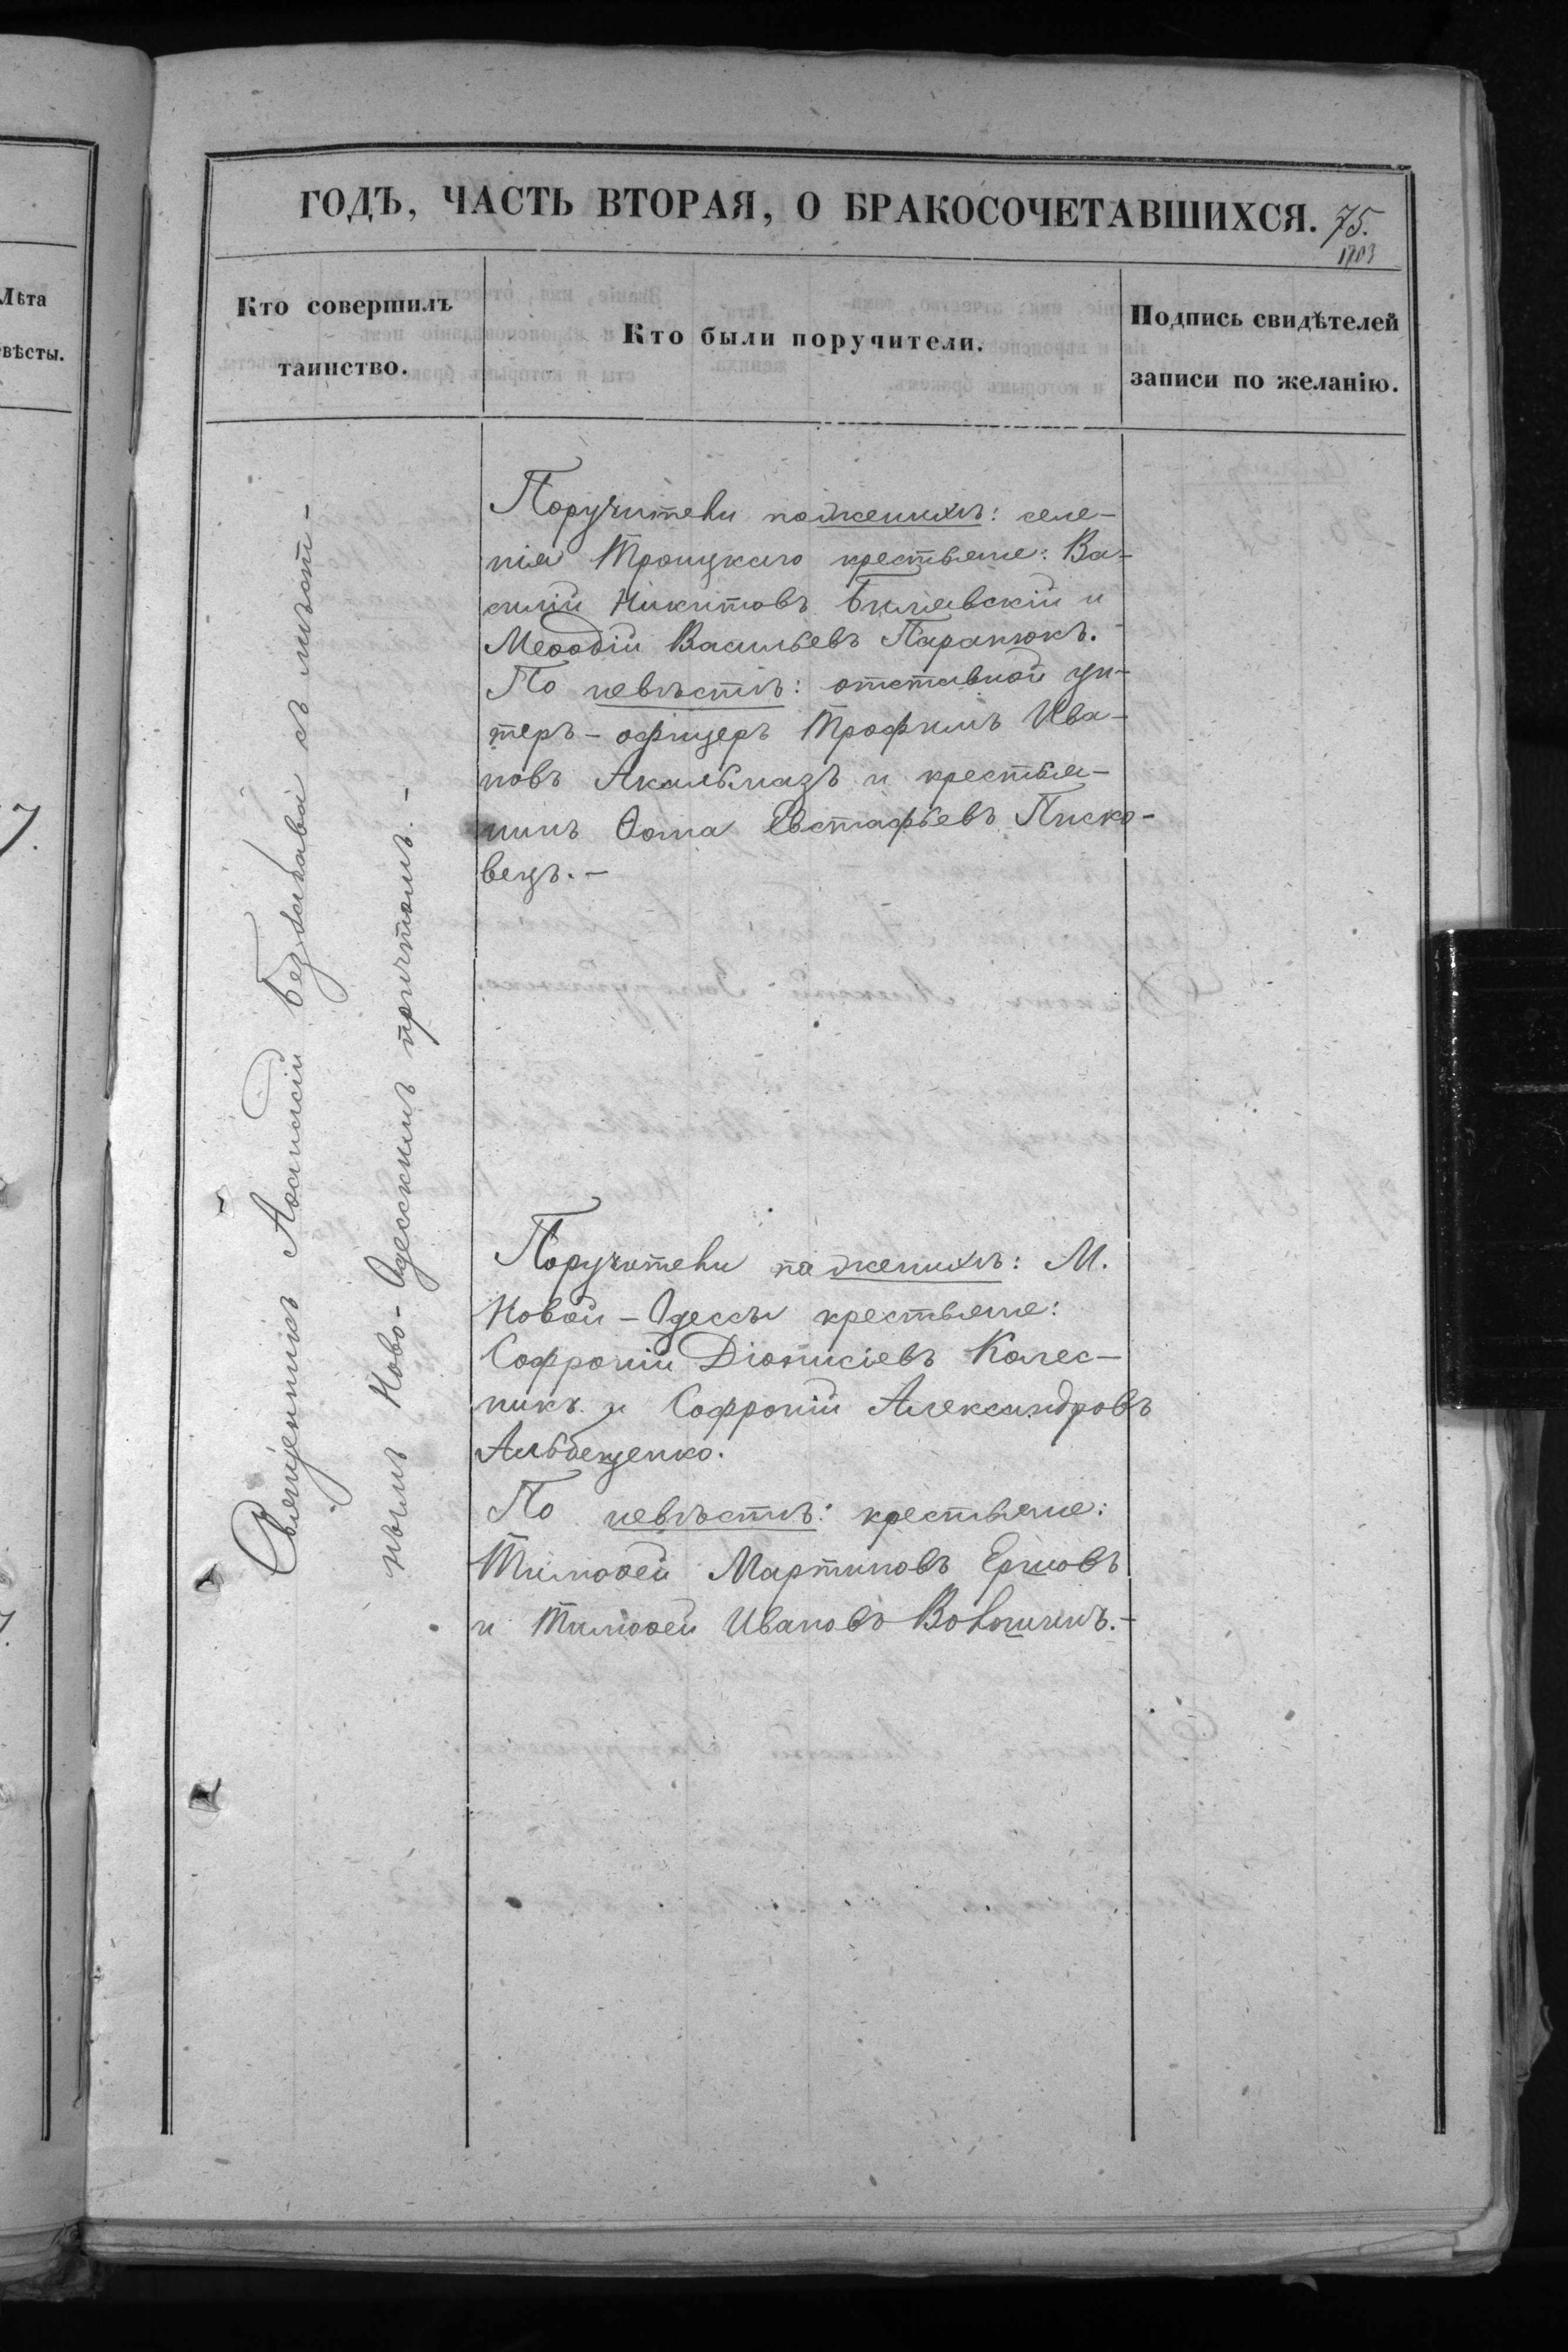 Лѣта
вѣсты.
7.
ГОДЪ, ЧАСТЬ ВТОРАЯ, О БРАКОСОЧЕТАВШИХСЯ. 75.
Кто совершилъ
таинство.
Кто были поручители.
Подпись свидѣтелей
записи по желанію.
Священникъ Аѳанасій с мѣст-
нымъ Ново-Одесскимъ причтомъ.-
Поручители по женихѣ: селе-
нія Троицкаго крестьяне: Ва-
силій Никитовъ Билевскій и
Меѳодій Васильевъ Паранюкъ.
По невѣстѣ: отставной ун-
теръ-офицеръ Трофимъ Ива-
новъ Акальмазъ и крестья-
нинъ Ѳома Евстафьевъ Писко-
вецъ.-
Поручители по женихѣ: М.
Новой-Одессы крестьяне:
Софроній Діонисіевъ Колес-
никъ и Софроній Александровъ
По невѣстѣ: крестьяне:
Тимоѳей Мартиновъ Ершовъ
и Тимоѳей Ивановъ Волошинъ.-